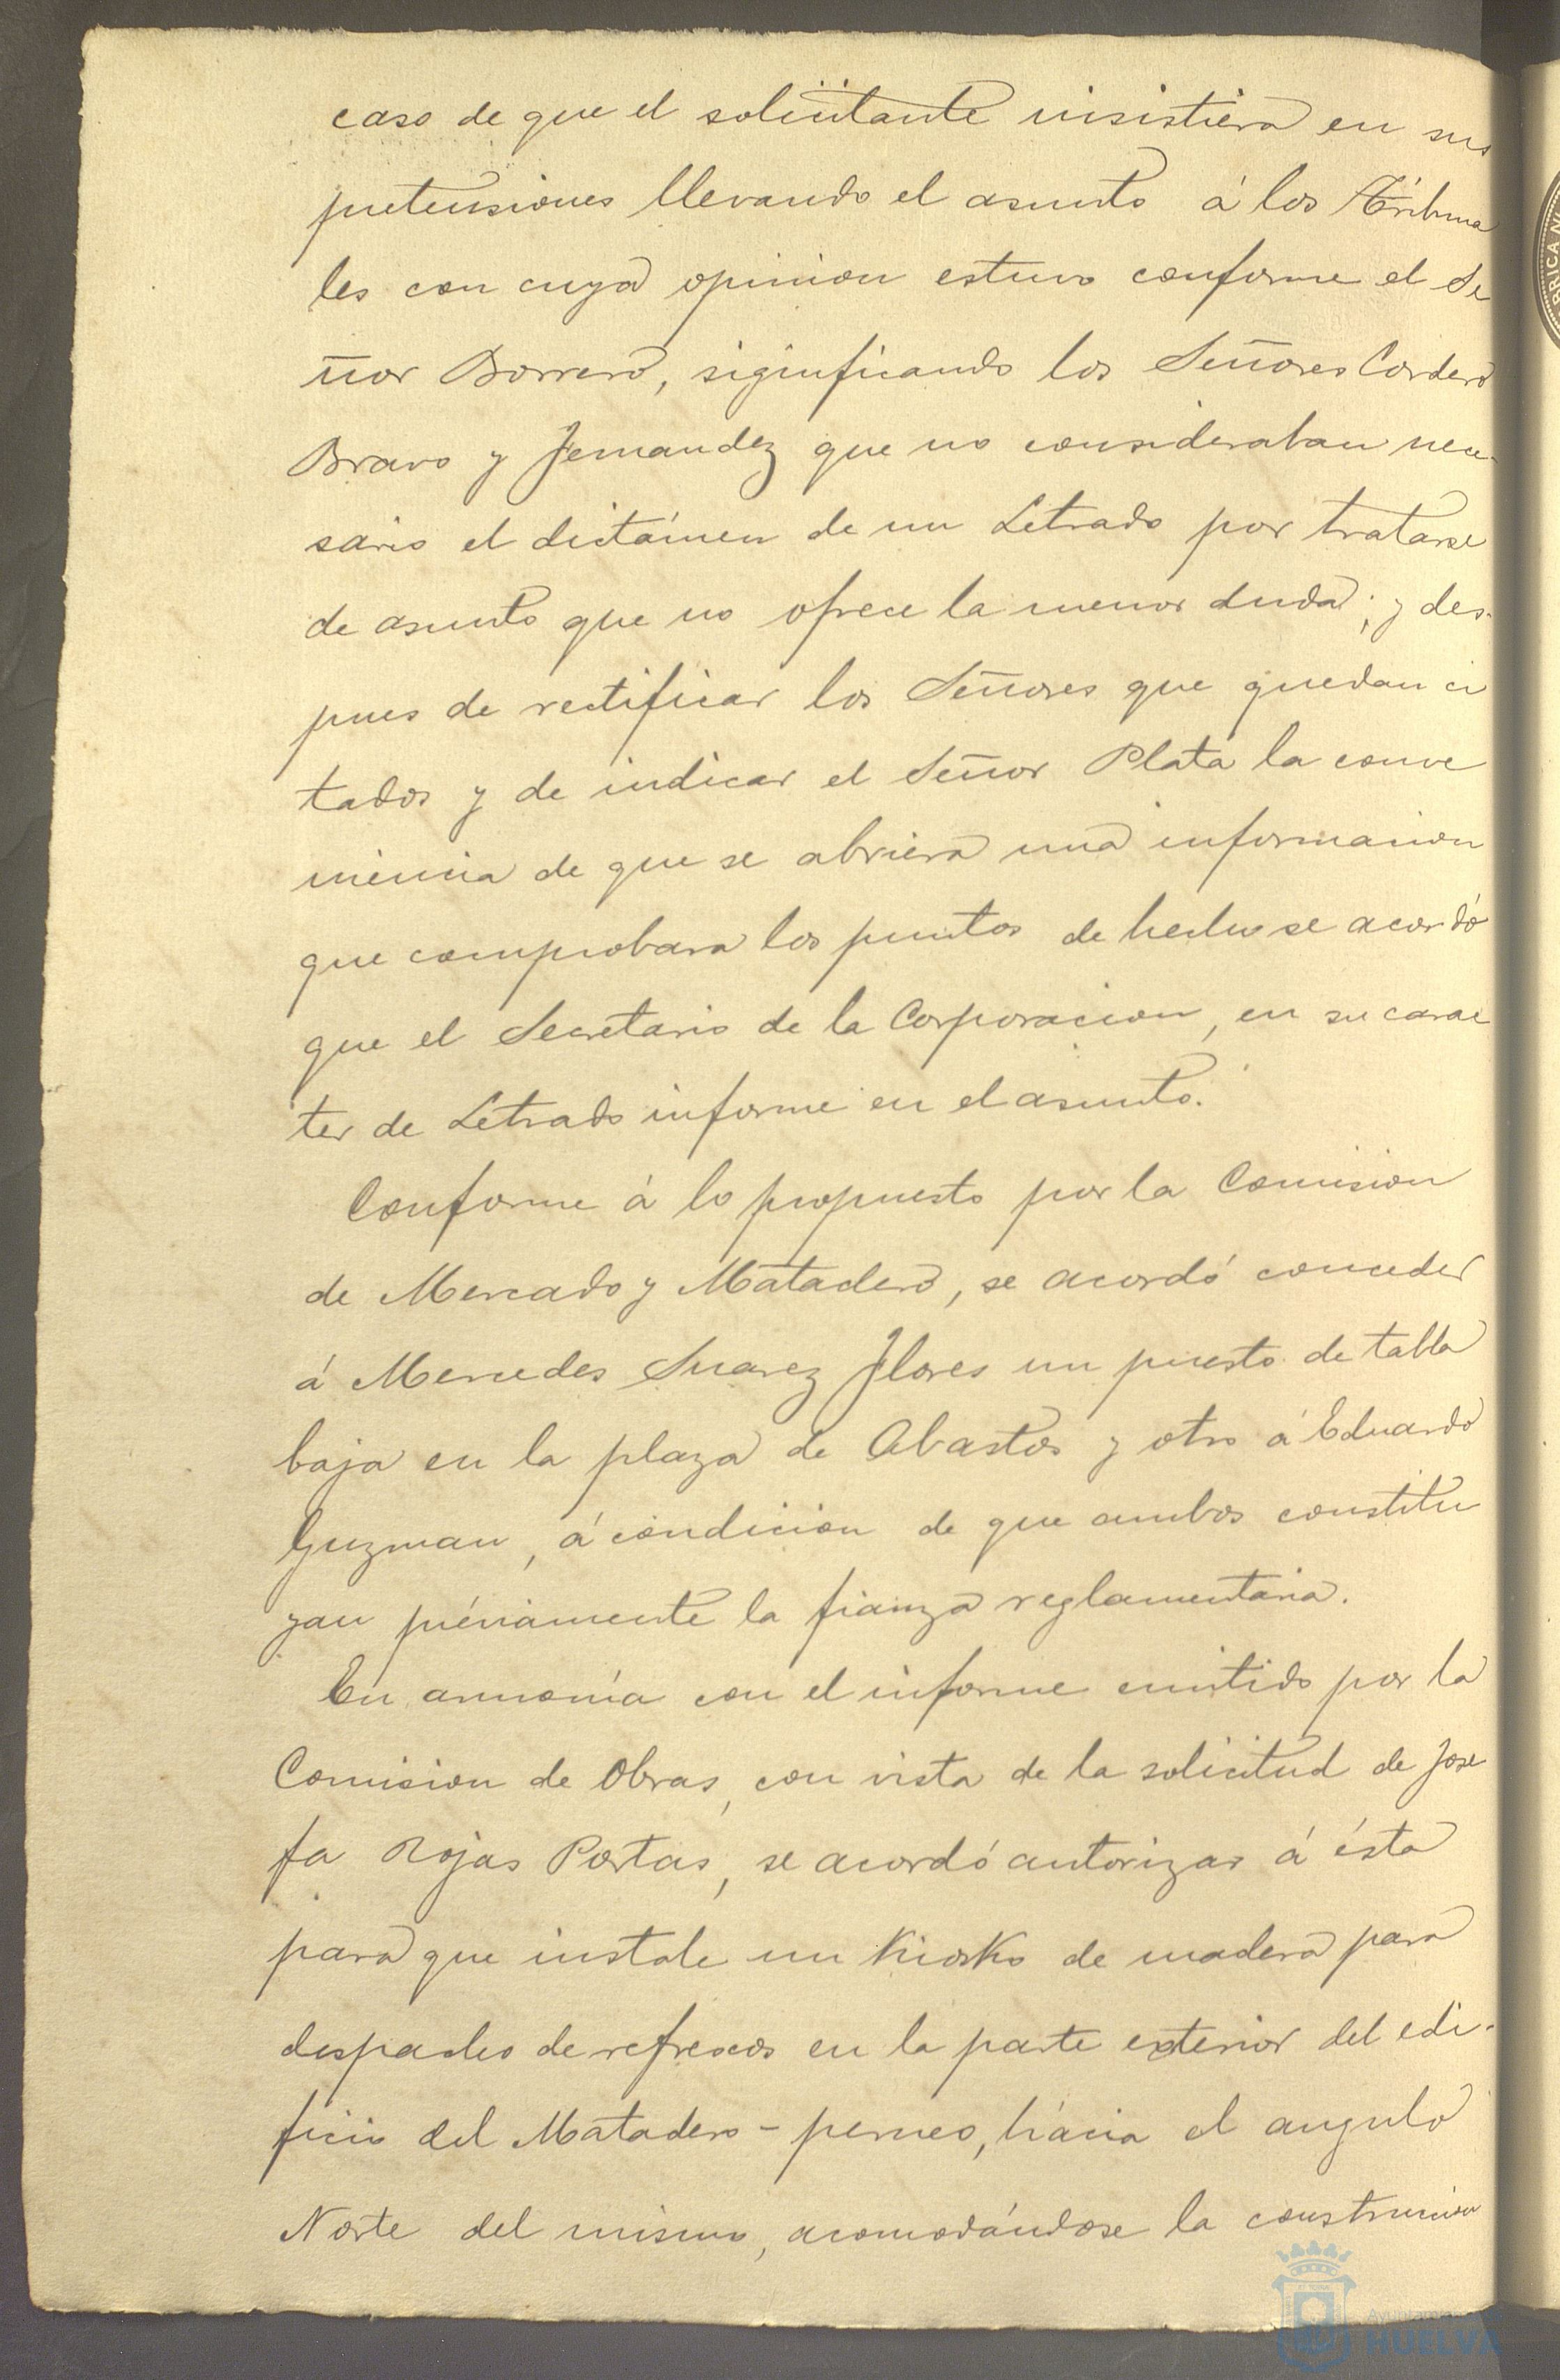 caso de que el solicitante insistiera en sus
pretensiones llevando el asunto á los Tribuna
les con cuya opinion estuvo conforme el Se
ñor Borrero, siginficando los Señores Cordero
Bravo y Fernandez que no consideraban nece-
sario el dictámen de un Letrado por tratarse
de asunto que no ofrece la menor duda; y des-
pues de rectificar los Señores que quedan ci
tados y de indicar el Señor Plata la conve
niencia de que se abriera una informacion
que comprobara los puntos de hecho se acordó
que el Secretario de la Corporacion, en su carac
ter de Letrado informe en el asunto.
Conforme á lo propuesto por la Comision
de Mercado y Matadero, se acordó conceder
á Mercedes Suarez Flores un puesto de tabla
baja en la plaza de Abastos y otro á Eduardo
Guzman, á condicion de que ambos constitu
yan préviamente la fianza reglamentaria.
En armonía con el informe emitido por la
Comision de Obras, con vista de la solicitud de Jose
fa Rojas Portas, se acordó autorizar á ésta
para que instale un Kiosko de madera para
despacho de refrescos en la parte exterior del edi-
ficio del Matadero - perneo, hácia el angulo
Norte del mismo, acomodándose la construccion
HUELVA